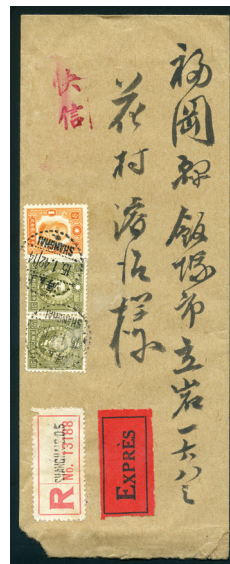 福岡縣飯塚市立岩一六八
花村 様
快信
SHANGHAI
SHANGHAI
R
SHANGHAI
No. 13188
EXPRÈS